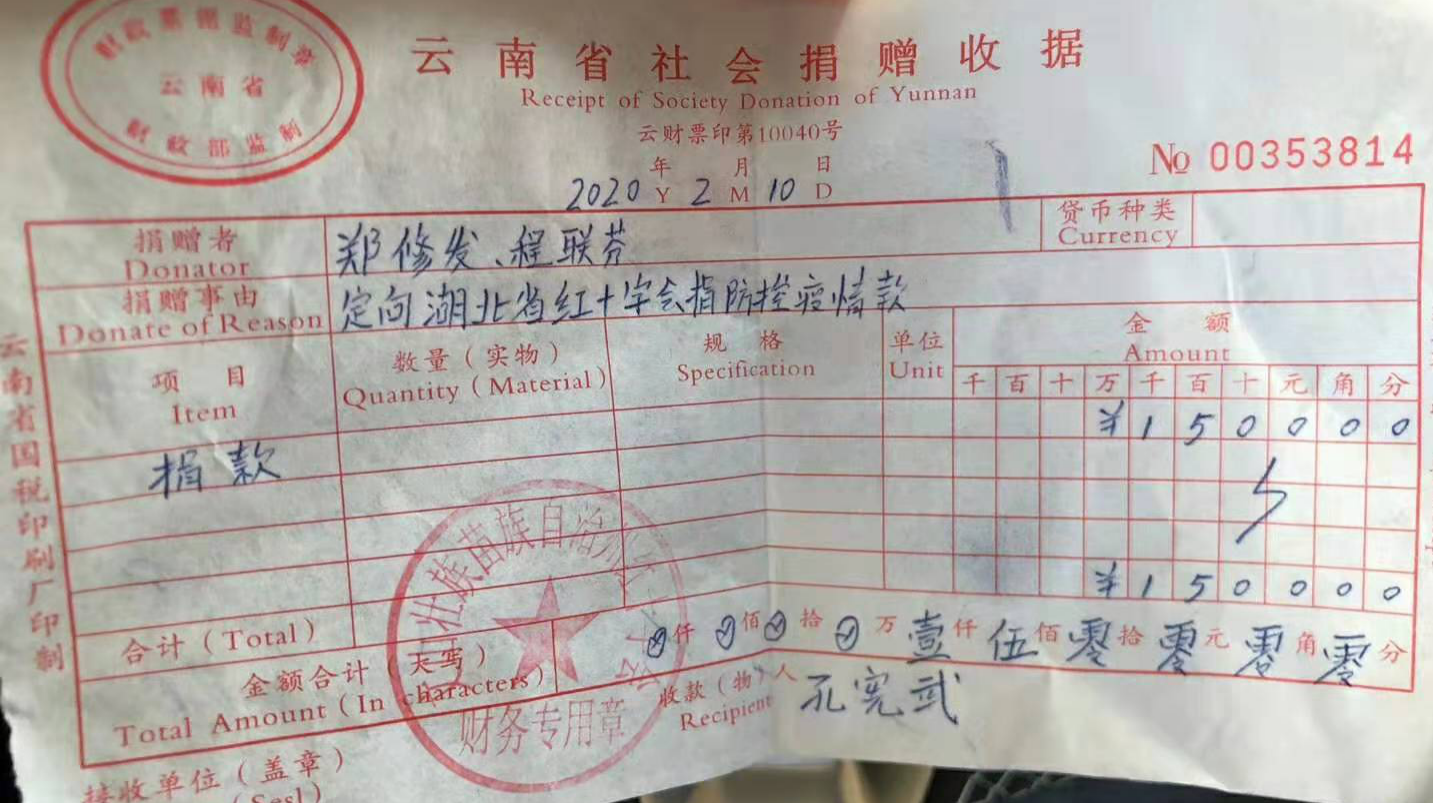 财政票据监制章
云南省
财政部监制
云南省社会捐赠收据
Receipt of Society Donation of Yunnan
云财票印第10040号
年 月 日
2020 Y 2 M 10 D
№ 00353814
捐赠者 郑修发、程联芬 货币种类
Donator Currency
捐赠事由 定向湖北省红十字会捐防控疫情款
Donate of Reason
项目 数量(实物) 规格 单位 金额
Item Quantity(Material) Specification Unit Amount
千 百 十 万 千 百 十 元 角 分
¥ 1 5 0 0 0 0
捐款
¥ 1 5 0 0 0 0
合计(Total)
金额合计(大写) 仟 佰 拾 万 壹 仟 伍 佰 零 拾 零 元 零 角 零 分
Total Amount(In characters)
收款(物)人 孔宪武
Recipient
壮族苗族自治州
财务专用章
接收单位(盖章)
(Sesl)
云南省国税印刷厂印制